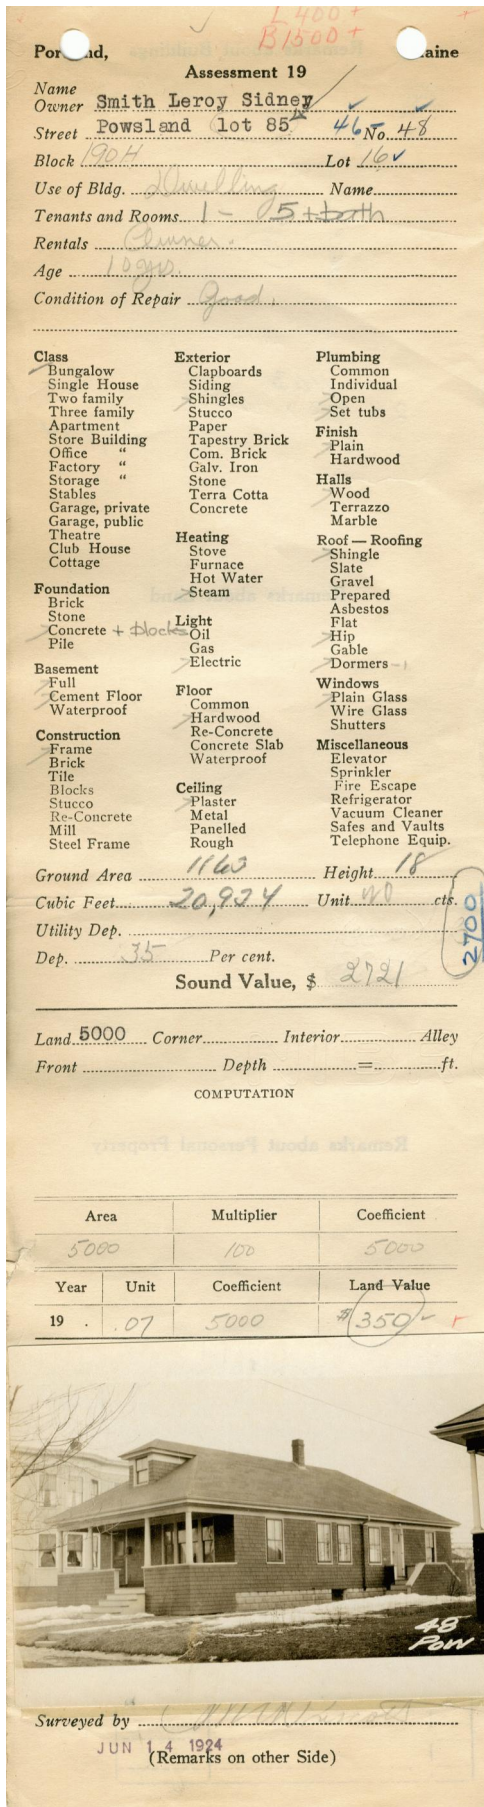 L 400 +
B 1500 +
Portland, Maine
Assessment 19
Name
Owner Smith Leroy Sidney
Street Powsland lot 85 46- No. 48
Block 190H Lot 16
Use of Bldg. Dwelling Name
Tenants and Rooms 1 - 5 + bath
Rentals Owner.
Age 10 yrs.
Condition of Repair Good.
Class
Bungalow
Single House
Two family
Three family
Apartment
Store Building
Office "
Factory "
Storage "
Stables
Garage, private
Garage, public
Theatre
Club House
Cottage
Foundation
Brick
Stone
Concrete + blocks
Pile
Basement
Full
Cement Floor
Waterproof
Construction
Frame
Brick
Tile
Blocks
Stucco
Re-Concrete
Mill
Steel Frame
Exterior
Clapboards
Siding
Shingles
Stucco
Paper
Tapestry Brick
Com. Brick
Galv. Iron
Stone
Terra Cotta
Concrete
Heating
Stove
Furnace
Hot Water
Steam
Light
Oil
Gas
Electric
Floor
Common
Hardwood
Re-Concrete
Concrete Slab
Waterproof
Ceiling
Plaster
Metal
Panelled
Rough
Plumbing
Common
Individual
Open
Set tubs
Finish
Plain
Hardwood
Halls
Wood
Terrazzo
Marble
Roof — Roofing
Shingle
Slate
Gravel
Prepared
Asbestos
Flat
Hip
Gable
Dormers - 1
Windows
Plain Glass
Wire Glass
Shutters
Miscellaneous
Elevator
Sprinkler
Fire Escape
Refrigerator
Vacuum Cleaner
Safes and Vaults
Telephone Equip.
Ground Area 1163 Height 18
Cubic Feet 20,934 Unit 20 cts.
2700
Utility Dep.
Dep. 35 Per cent.
Sound Value, $ 2721
Land 5000 Corner Interior Alley
Front Depth = ft.
COMPUTATION
Area Multiplier Coefficient
5000 100 5000
Year Unit Coefficient Land Value
19 . .07 5000 $350
48
POW
Surveyed by
JUN 14 1924
(Remarks on other Side)